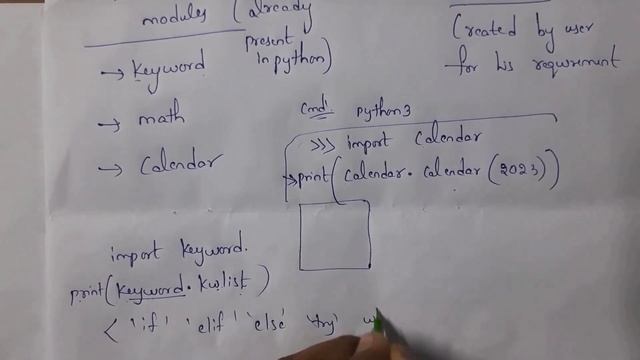 modules (already
present
in python)
→ keyword
→ math
→ Calendar
Created by user
for his requirement
cmd: python3
>>> import Calendar
>print(Calendar.Calendar(2023))
import keyword.
print(keyword.kwlist)
< 'if' 'elif' 'else' 'try' w